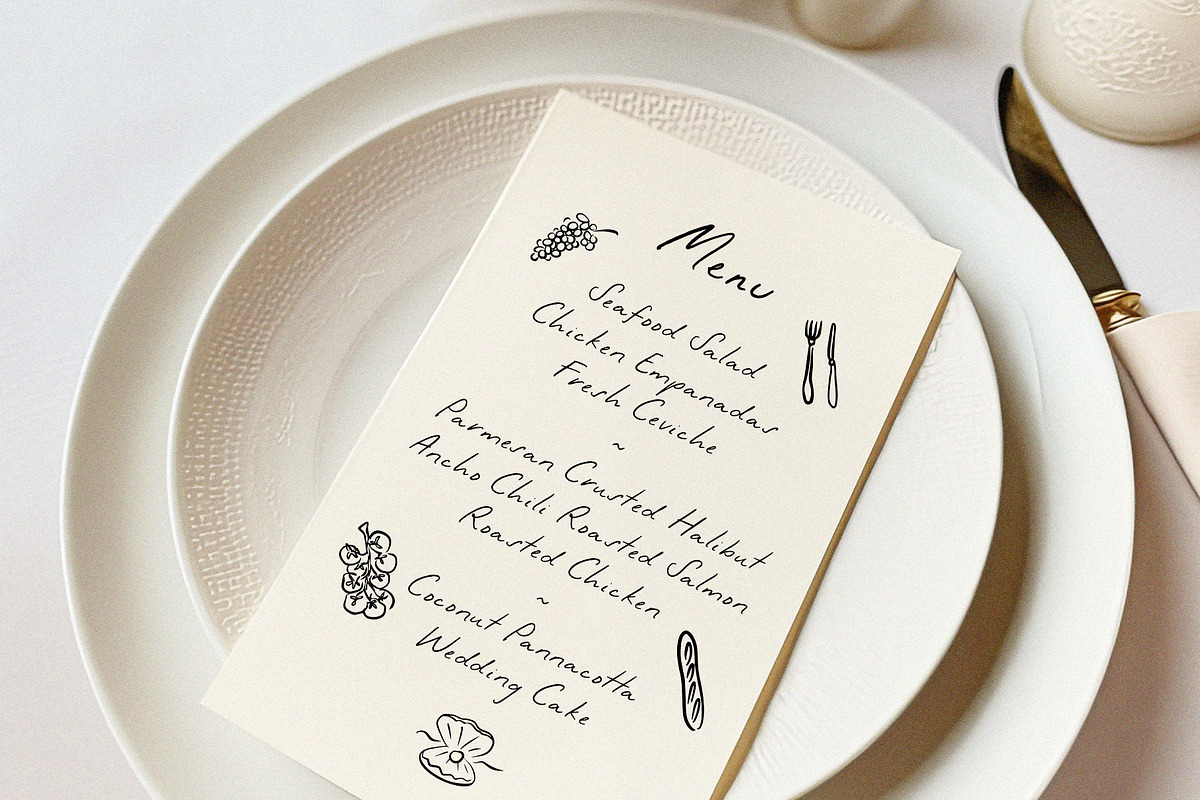 Menu
Seafood Salad
Chicken Empanadas
Fresh Ceviche
~
Parmesan Crusted Halibut
Ancho Chili Roasted Salmon
Roasted Chicken
~
Coconut Pannacotta
Wedding Cake